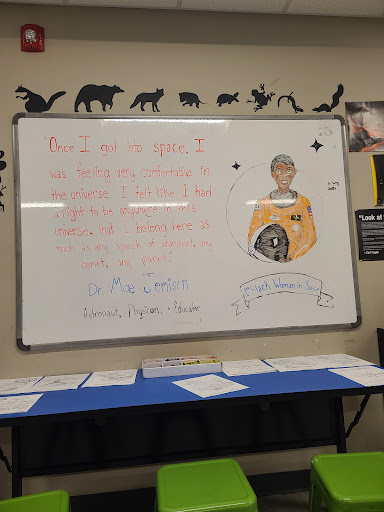 Once I got into space, I
was feeling very comfortable in
the universe. I felt like I had
a right to be anywhere in this
universe, that I belong here as
much as any speck of stardust, any
comet, any planet!
Dr Mae Jemison
Astronaut, Physician, & Educator
Black Woman in Space
Look at